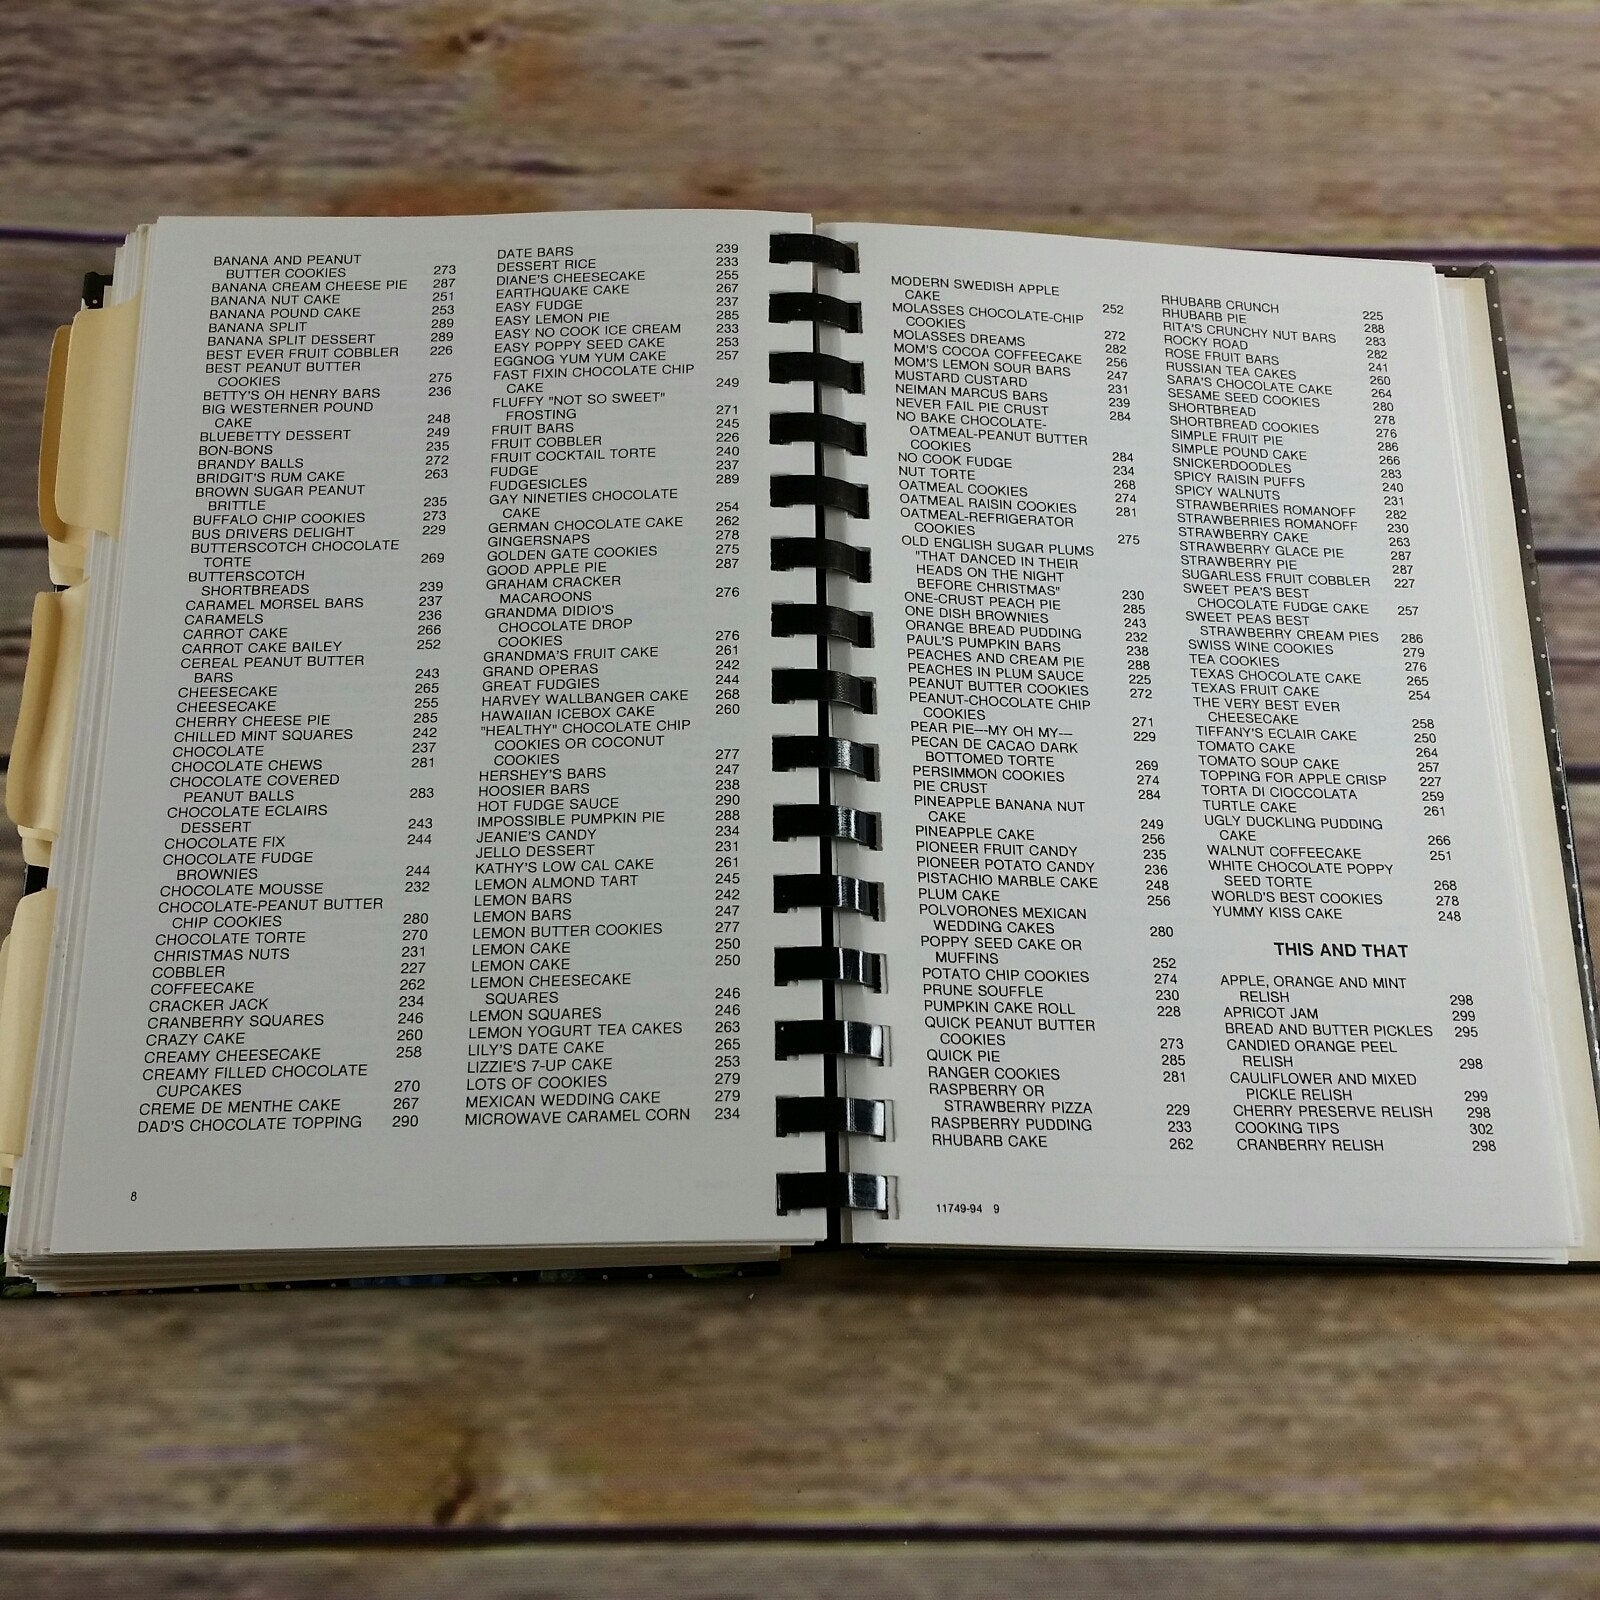 BANANA AND PEANUT
BUTTER COOKIES 273
BANANA CREAM CHEESE PIE 287
BANANA NUT CAKE 251
BANANA POUND CAKE 253
BANANA SPLIT 289
BANANA SPLIT DESSERT 289
BEST EVER FRUIT COBBLER 226
BEST PEANUT BUTTER
COOKIES 275
BETTY'S OH HENRY BARS 236
BIG WESTERNER POUND
CAKE 248
BLUEBETTY DESSERT 249
BON-BONS 235
BRANDY BALLS 272
BRIDGIT'S RUM CAKE 263
BROWN SUGAR PEANUT
BRITTLE 235
BUFFALO CHIP COOKIES 273
BUS DRIVERS DELIGHT 229
BUTTERSCOTCH CHOCOLATE
TORTE 269
BUTTERSCOTCH
SHORTBREADS 239
CARAMEL MORSEL BARS 237
CARAMELS 236
CARROT CAKE 266
CARROT CAKE BAILEY 252
CEREAL PEANUT BUTTER
BARS 243
CHEESECAKE 265
CHEESECAKE 255
CHERRY CHEESE PIE 285
CHILLED MINT SQUARES 242
CHOCOLATE 237
CHOCOLATE CHEWS 281
CHOCOLATE COVERED
PEANUT BALLS 283
CHOCOLATE ECLAIRS
DESSERT 243
CHOCOLATE FIX 244
CHOCOLATE FUDGE
BROWNIES 244
CHOCOLATE MOUSSE 232
CHOCOLATE-PEANUT BUTTER
CHIP COOKIES 280
CHOCOLATE TORTE 270
CHRISTMAS NUTS 231
COBBLER 227
COFFEECAKE 262
CRACKER JACK 234
CRANBERRY SQUARES 246
CRAZY CAKE 260
CREAMY CHEESECAKE 258
CREAMY FILLED CHOCOLATE
CUPCAKES 270
CREME DE MENTHE CAKE 267
DAD'S CHOCOLATE TOPPING 290
DATE BARS 239
DESSERT RICE 233
DIANE'S CHEESECAKE 255
EARTHQUAKE CAKE 267
EASY FUDGE 237
EASY LEMON PIE 285
EASY NO COOK ICE CREAM 233
EASY POPPY SEED CAKE 253
EGGNOG YUM YUM CAKE 257
FAST FIXIN CHOCOLATE CHIP
CAKE 249
FLUFFY "NOT SO SWEET"
FROSTING 271
FRUIT BARS 245
FRUIT COBBLER 226
FRUIT COCKTAIL TORTE 240
FUDGE 237
FUDGESICLES 289
GAY NINETIES CHOCOLATE
CAKE 254
GERMAN CHOCOLATE CAKE 262
GINGERSNAPS 278
GOLDEN GATE COOKIES 275
GOOD APPLE PIE 287
GRAHAM CRACKER
MACAROONS 276
GRANDMA DIDIO'S
CHOCOLATE DROP
COOKIES 276
GRANDMA'S FRUIT CAKE 261
GRAND OPERAS 242
GREAT FUDGIES 244
HARVEY WALLBANGER CAKE 268
HAWAIIAN ICEBOX CAKE 260
"HEALTHY" CHOCOLATE CHIP
COOKIES OR COCONUT
COOKIES 277
HERSHEY'S BARS 247
HOOSIER BARS 238
HOT FUDGE SAUCE 290
IMPOSSIBLE PUMPKIN PIE 288
JEANIE'S CANDY 234
JELLO DESSERT 231
KATHY'S LOW CAL CAKE 261
LEMON ALMOND TART 245
LEMON BARS 242
LEMON BARS 247
LEMON BUTTER COOKIES 277
LEMON CAKE 250
LEMON CAKE 250
LEMON CHEESECAKE
SQUARES 246
LEMON SQUARES 246
LEMON YOGURT TEA CAKES 263
LILY'S DATE CAKE 265
LIZZIE'S 7-UP CAKE 253
LOTS OF COOKIES 279
MEXICAN WEDDING CAKE 279
MICROWAVE CARAMEL CORN 234
8
MODERN SWEDISH APPLE
CAKE 252
MOLASSES CHOCOLATE-CHIP
COOKIES 272
MOLASSES DREAMS 282
MOM'S COCOA COFFEECAKE 256
MOM'S LEMON SOUR BARS 247
MUSTARD CUSTARD 231
NEIMAN MARCUS BARS 239
NEVER FAIL PIE CRUST 284
NO BAKE CHOCOLATE-
OATMEAL-PEANUT BUTTER
COOKIES 284
NO COOK FUDGE 234
NUT TORTE 268
OATMEAL COOKIES 274
OATMEAL RAISIN COOKIES 281
OATMEAL-REFRIGERATOR
COOKIES 275
OLD ENGLISH SUGAR PLUMS
"THAT DANCED IN THEIR
HEADS ON THE NIGHT
BEFORE CHRISTMAS" 230
ONE-CRUST PEACH PIE 285
ONE DISH BROWNIES 243
ORANGE BREAD PUDDING 232
PAUL'S PUMPKIN BARS 238
PEACHES AND CREAM PIE 288
PEACHES IN PLUM SAUCE 225
PEANUT BUTTER COOKIES 272
PEANUT-CHOCOLATE CHIP
COOKIES 271
PEAR PIE---MY OH MY--- 229
PECAN DE CACAO DARK
BOTTOMED TORTE 269
PERSIMMON COOKIES 274
PIE CRUST 284
PINEAPPLE BANANA NUT
CAKE 249
PINEAPPLE CAKE 256
PIONEER FRUIT CANDY 235
PIONEER POTATO CANDY 236
PISTACHIO MARBLE CAKE 248
PLUM CAKE 256
POLVORONES MEXICAN
WEDDING CAKES 280
POPPY SEED CAKE OR
MUFFINS 252
POTATO CHIP COOKIES 274
PRUNE SOUFFLE 230
PUMPKIN CAKE ROLL 228
QUICK PEANUT BUTTER
COOKIES 273
QUICK PIE 285
RANGER COOKIES 281
RASPBERRY OR
STRAWBERRY PIZZA 229
RASPBERRY PUDDING 233
RHUBARB CAKE 262
RHUBARB CRUNCH 225
RHUBARB PIE 288
RITA'S CRUNCHY NUT BARS 283
ROCKY ROAD 282
ROSE FRUIT BARS 241
RUSSIAN TEA CAKES 260
SARA'S CHOCOLATE CAKE 264
SESAME SEED COOKIES 280
SHORTBREAD 278
SHORTBREAD COOKIES 276
SIMPLE FRUIT PIE 286
SIMPLE POUND CAKE 266
SNICKERDOODLES 283
SPICY RAISIN PUFFS 240
SPICY WALNUTS 231
STRAWBERRIES ROMANOFF 282
STRAWBERRIES ROMANOFF 230
STRAWBERRY CAKE 263
STRAWBERRY GLACE PIE 287
STRAWBERRY PIE 287
SUGARLESS FRUIT COBBLER 227
SWEET PEA'S BEST
CHOCOLATE FUDGE CAKE 257
SWEET PEAS BEST
STRAWBERRY CREAM PIES 286
SWISS WINE COOKIES 279
TEA COOKIES 276
TEXAS CHOCOLATE CAKE 265
TEXAS FRUIT CAKE 254
THE VERY BEST EVER
CHEESECAKE 258
TIFFANY'S ECLAIR CAKE 250
TOMATO CAKE 264
TOMATO SOUP CAKE 257
TOPPING FOR APPLE CRISP 227
TORTA DI CIOCCOLATA 259
TURTLE CAKE 261
UGLY DUCKLING PUDDING
CAKE 266
WALNUT COFFEECAKE 251
WHITE CHOCOLATE POPPY
SEED TORTE 268
WORLD'S BEST COOKIES 278
YUMMY KISS CAKE 248
THIS AND THAT
APPLE, ORANGE AND MINT
RELISH 298
APRICOT JAM 299
BREAD AND BUTTER PICKLES 295
CANDIED ORANGE PEEL
RELISH 298
CAULIFLOWER AND MIXED
PICKLE RELISH 299
CHERRY PRESERVE RELISH 298
COOKING TIPS 302
CRANBERRY RELISH 298
11749-94 9